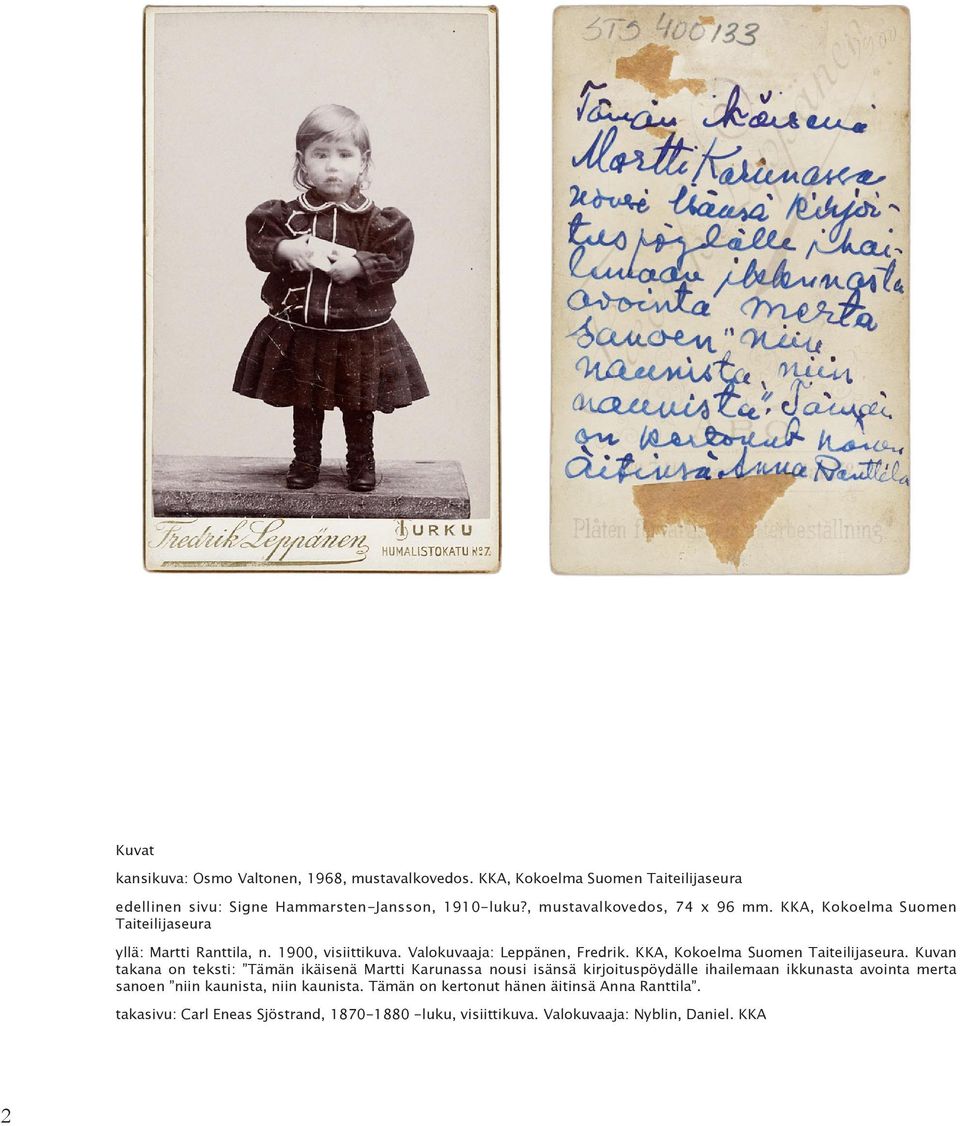 Fredrik Leppänen
TURKU
HUMALISTOKATU No 7.
STS 400133
Tämän ikäisenä
Martti Karunassa
nousi isänsä kirjoi-
tuspöydälle ihai-
lemaan ikkunasta
avointa merta
sanoen "niin
kaunista, niin
kaunista". Tämän
on kertonut hänen
äitinsä Anna Ranttila
Plåten efterbeställning.
Kuvat
kansikuva: Osmo Valtonen, 1968, mustavalkovedos. KKA, Kokoelma Suomen Taiteilijaseura
edellinen sivu: Signe Hammarsten-Jansson, 1910-luku?, mustavalkovedos, 74 x 96 mm. KKA, Kokoelma Suomen
Taiteilijaseura
yllä: Martti Ranttila, n. 1900, visiittikuva. Valokuvaaja: Leppänen, Fredrik. KKA, Kokoelma Suomen Taiteilijaseura. Kuvan
takana on teksti: ”Tämän ikäisenä Martti Karunassa nousi isänsä kirjoituspöydälle ihailemaan ikkunasta avointa merta
sanoen ”niin kaunista, niin kaunista. Tämän on kertonut hänen äitinsä Anna Ranttila”.
takasivu: Carl Eneas Sjöstrand, 1870-1880 -luku, visiittikuva. Valokuvaaja: Nyblin, Daniel. KKA
2